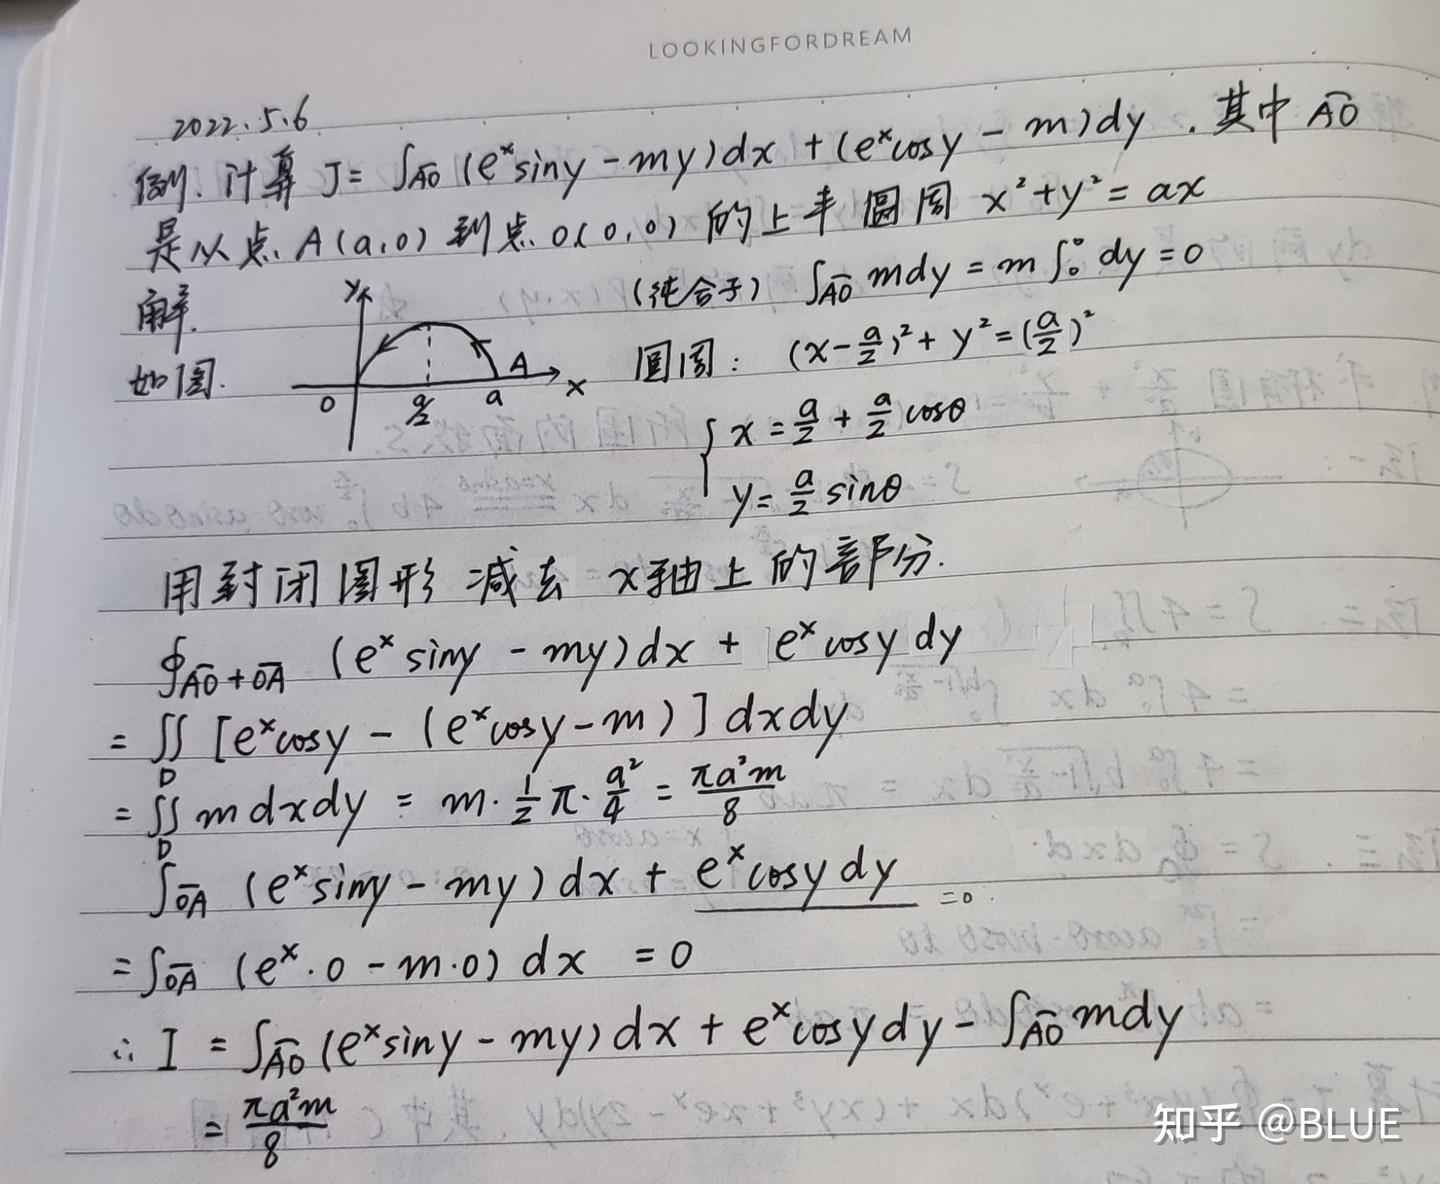 LOOKINGFORDREAM
2022.5.6
例. 计算 J= ∫_A͞O (e^x siny - my)dx + (e^x cosy - m)dy . 其中 A͞O
是从点 A(a,0) 到点 O(0,0) 的上半圆周 x²+y²=ax
解.
如图.
y
A
0
a/2
a
x
(纯合子) ∫_A͞O mdy = m∫₀⁰ dy = 0
圆周: (x-a/2)² + y² = (a/2)²
{ x = a/2 + a/2 cosθ
y = a/2 sinθ
用封闭图形 减去 x轴上的部分.
∮_A͞O+O͞A (e^x siny - my)dx + e^x cosy dy
= ∬_D [e^x cosy - (e^x cosy - m)] dxdy
= ∬_D m dxdy = m·1/2 π·a²/4 = πa²m/8
∫_O͞A (e^x siny - my) dx + e^x cosy dy =0.
= ∫_O͞A (e^x·0 - m·0) dx = 0
∴ I = ∫_A͞O (e^x siny - my) dx + e^x cosy dy - ∫_A͞O mdy
= πa²m/8
知乎 @BLUE